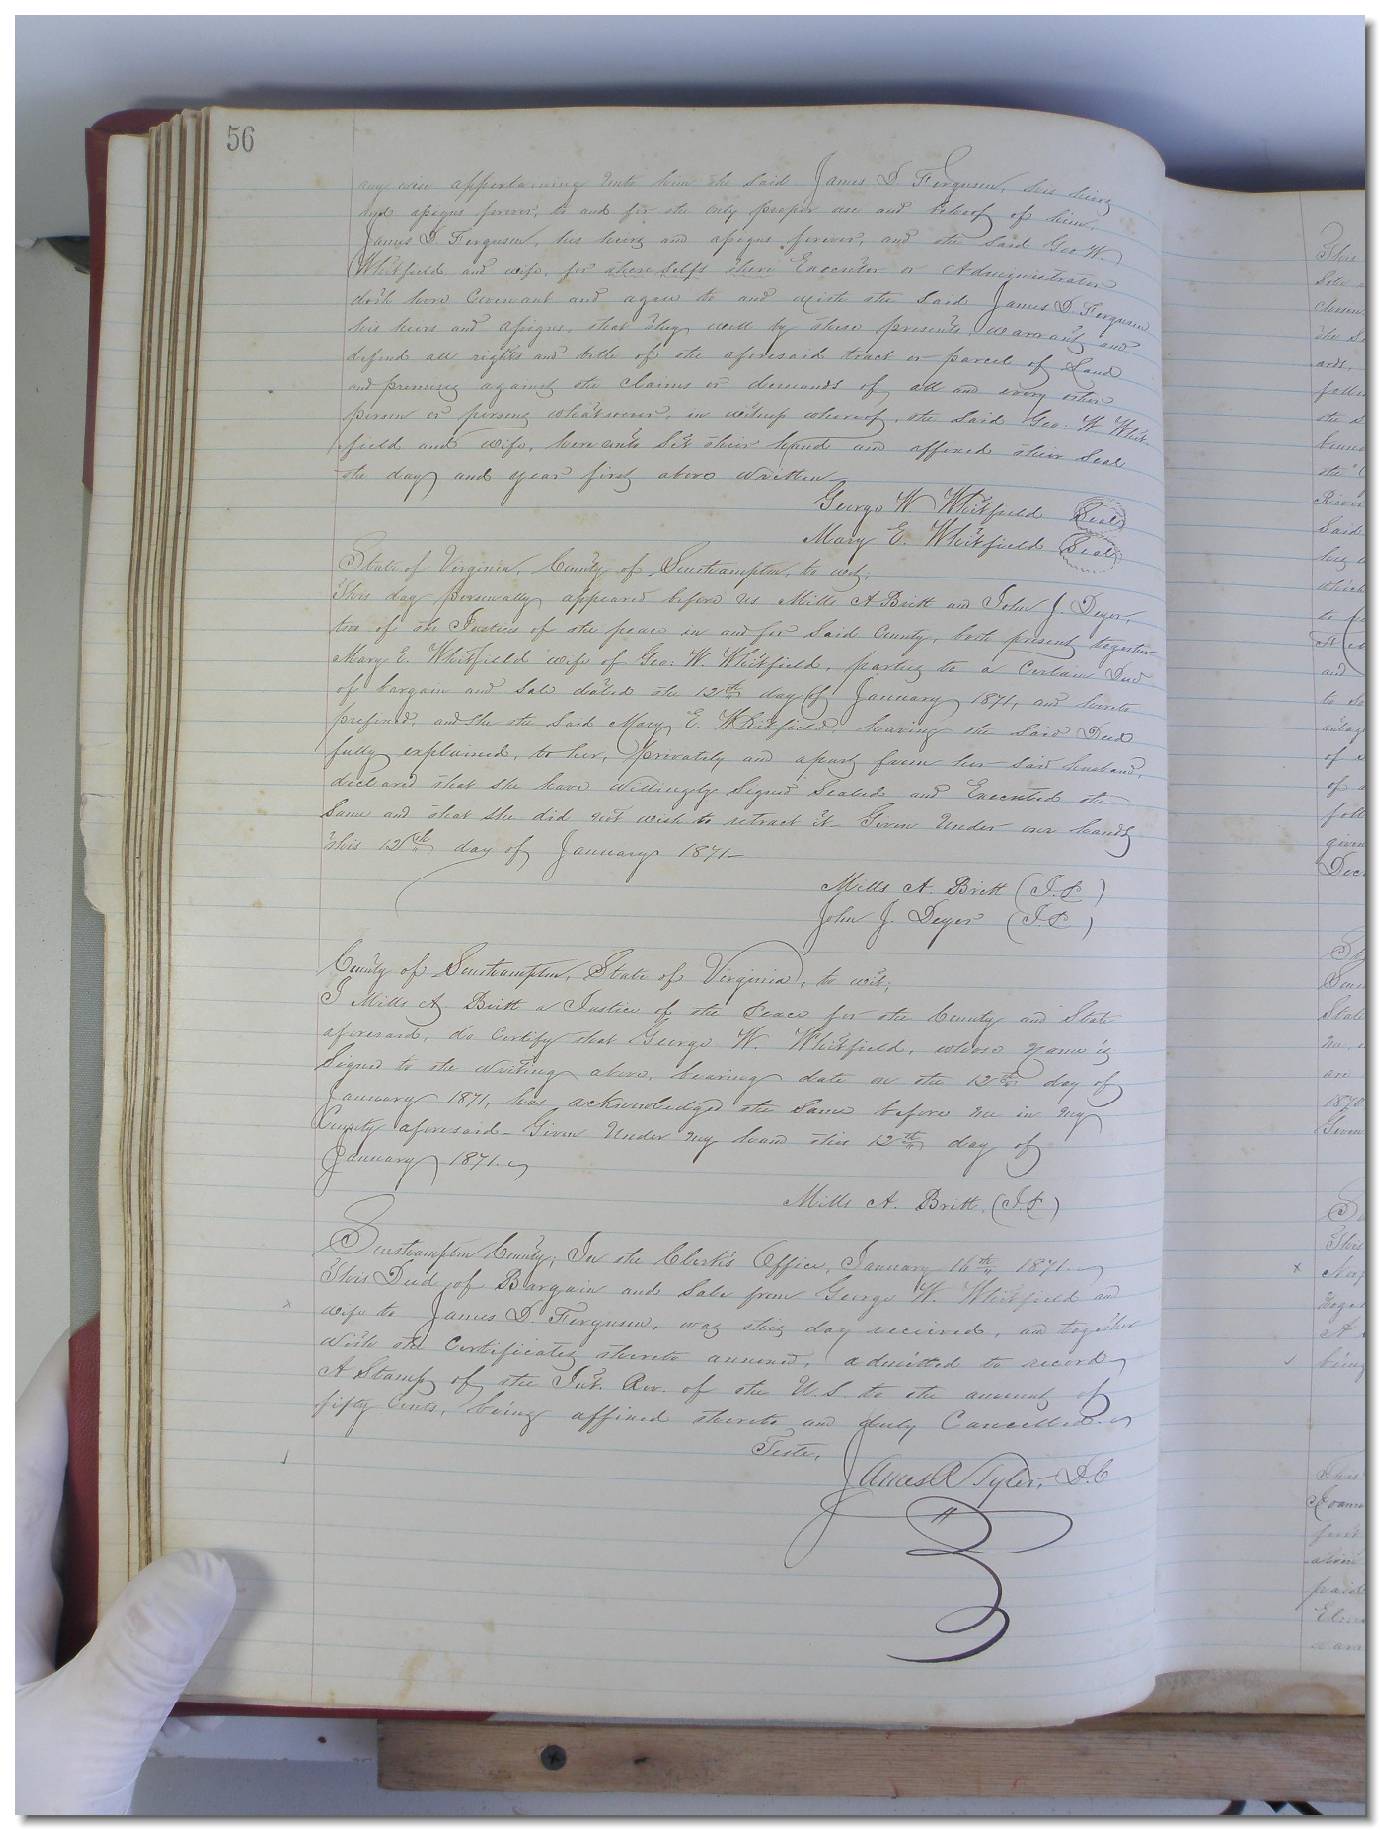 56
any wise appertaining unto him the said James D. Ferguson, his heirs
and assigns forever, to and for the only proper use and behoof of him,
James D. Ferguson, his heirs and assigns forever, and the said Geo W
Whitfield and wife, for there selfs there Executor or Administrator
doth here Covenant and agree to and with the said James D. Ferguson
his heirs and assigns, that they will by these presents warrant and
defend all rights and title of the aforesaid tract or parcel of Land
and premises against the claims or demands of all and every other
person or persons whatsoever, in witness whereof, the said Geo. W. Whit-
field and wife, hereunto set their hand and affixed their Seal
the day and year first above written
George W Whitfield Seal
Mary E. Whitfield Seal
State of Virginia, County of Southampton, to wit;
This day personally appeared before us Mills A Britt and John J. Deyer,
two of the Justices of the peace in and for said County, both present together
Mary E. Whitfield wife of Geo. W. Whitfield, parties to a certain Deed
of bargain and sale dated the 12th day of January 1871, and hereto
prefixed, and she the said Mary E. Whitfield, having the said Deed
fully explained, to her, Privately and apart from her said husband,
declared that she have willingly signed sealed and Executed the
same and that she did not wish to retract it Given under our hands
this 12th day of January 1871
Mills A. Britt (J.P.)
John J. Deyer (J.P.)
County of Southampton, State of Virginia, to wit;
I Mills A Britt a Justice of the Peace for the County and State
aforesaid, do certify that George W. Whitfield, whose name is
signed to the writing above, bearing date on the 12th day of
January 1871, has acknowledged the same before me in my
County aforesaid - Given under my hand this 12th day of
January 1871.
Mills A. Britt, (J.P.)
Southampton County; In the Clerk's Office, January 16th 1871.
This Deed of Bargain and Sale from George W. Whitfield and
x wife to James D. Ferguson, was this day received, and together
with the certificates thereto annexed, admitted to record,
A Stamp of the Int. Rev. of the U.S. to the amount of
fifty Cents, being affixed thereto and duly Cancelled.
Teste,
James R Tyler, D.C